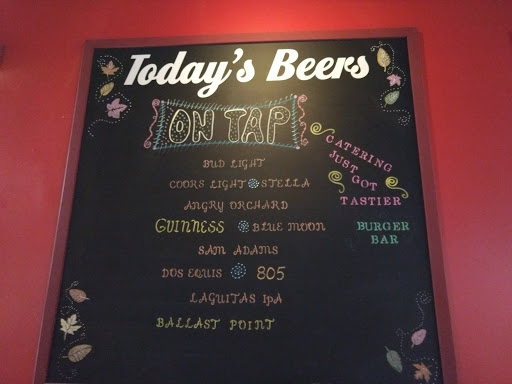 Today's Beers
ON TAP
BUD LIGHT
COORS LIGHT STELLA
ANGRY ORCHARD
GUINNESS BLUE MOON
SAM ADAMS
DOS EQUIS 805
LAGUITAS IPA
BALLAST POINT
CATERING
JUST
GOT
TASTIER
BURGER
BAR